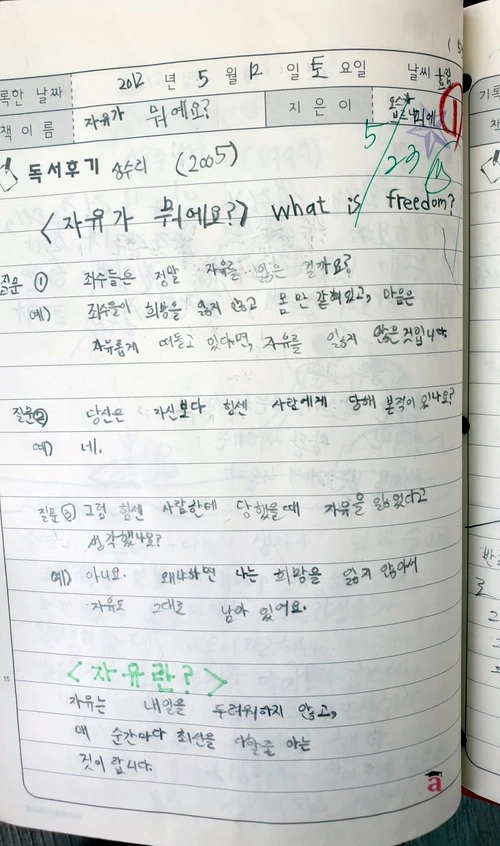 ( 5
록한 날짜 2012 년 5 월 12 일 토 요일 날씨 흐림
책 이름 자유가 뭐예요? 지 은 이
1
5/23
독서후기 상수리 (2005)
<자유가 뭐에요?> what is freedom?
질문 ① 죄수들은 정말 자유를 잃은 걸가요?
예) 죄수들이 희망을 잃지 않고 몸만 갇혀있고, 마음은
자유롭게 떠돌고 있다면, 자유를 잃지 않은것입니다.
질문② 당신은 자신보다 힘센 사람에게 당해 본적이 있나요?
예) 네.
질문 ③ 그럼 힘센 사람한테 당했을때 자유을 잃었다고
생각했나요?
예) 아니요. 왜냐하면 나는 희망을 잃지 않아서
자유도 그대로 남아 있어요.
<자유란?>
자유는 내일을 두려워하지 않고,
매 순간마다 최선을 다할줄 아는
것이랍니다.
15
a
기록
책
로